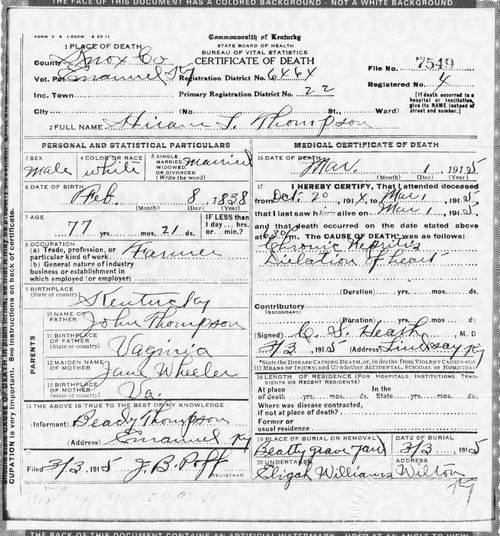 THE FACE OF THIS DOCUMENT HAS A COLORED BACKGROUND - NOT A WHITE BACKGROUND
Commonwealth of Kentucky
STATE BOARD OF HEALTH
BUREAU OF VITAL STATISTICS
CERTIFICATE OF DEATH
1 PLACE OF DEATH
County Knox Co
Vot. Pct. Emanuel Ky
Registration District No. 6464
File No. 7549
Inc. Town
Primary Registration District No. 22
Registered No. 4
City (No. St., Ward)
[If death occurred in a hospital or institution, give its NAME instead of street and number.]
2 FULL NAME Hiram L. Thompson
PERSONAL AND STATISTICAL PARTICULARS
3 SEX male
4 COLOR OR RACE white
5 SINGLE, MARRIED, WIDOWED, OR DIVORCED (Write the word) married
6 DATE OF BIRTH
Feb. 8 1838
(Month) (Day) (Year)
7 AGE
77 yrs. mos. 21 ds.
IF LESS than 1 day... hrs. or... min.?
8 OCCUPATION
(a) Trade, profession, or particular kind of work Farmer
(b) General nature of industry business or establishment in which employed (or employer)
9 BIRTHPLACE
(State or country) Kentucky
PARENTS
10 NAME OF FATHER John Thompson
11 BIRTHPLACE OF FATHER
(State or country) Vaginia
12 MAIDEN NAME OF MOTHER Jane Wheeler
13 BIRTHPLACE OF MOTHER
(State or country) Va.
14 THE ABOVE IS TRUE TO THE BEST OF MY KNOWLEDGE
(Informant) Beady Thompson
(Address) Emanuel Ky
Filed 3/3 1915 J. B. Poff
REGISTRAR
MEDICAL CERTIFICATE OF DEATH
16 DATE OF DEATH
Mar. 1 1915
(Month) (Day) (Year)
17 I HEREBY CERTIFY, That I attended deceased
from Oct 20, 1914, to Mar 1, 1915
that I last saw h alive on Mar 1, 1915
and that death occurred on the date stated above
at m. The CAUSE OF DEATH was as follows:
Chronic Nepritis
Dilation of heart
(Duration) yrs. mos. ds.
Contributory
(SECONDARY)
(Duration) yrs. mos. ds.
(Signed) C. S. Heath, M. D.
3/3, 1915 (Address) Lindsay Ky
*State the DISEASE CAUSING DEATH, or, in deaths from VIOLENT CAUSES state (1) MEANS OF INJURY; and (2) whether ACCIDENTAL, SUICIDAL or HOMICIDAL
18 LENGTH OF RESIDENCE (FOR HOSPITALS, INSTITUTIONS, TRANSIENTS OR RECENT RESIDENTS)
At place of death yrs. mos. ds. In the State yrs. mos. ds.
Where was disease contracted,
if not at place of death?
Former or
usual residence
19 PLACE OF BURIAL OR REMOVAL
Beatty grave yard
DATE OF BURIAL
3/3, 1915
20 UNDERTAKER
Eligah Williams
ADDRESS
Wilton Ky